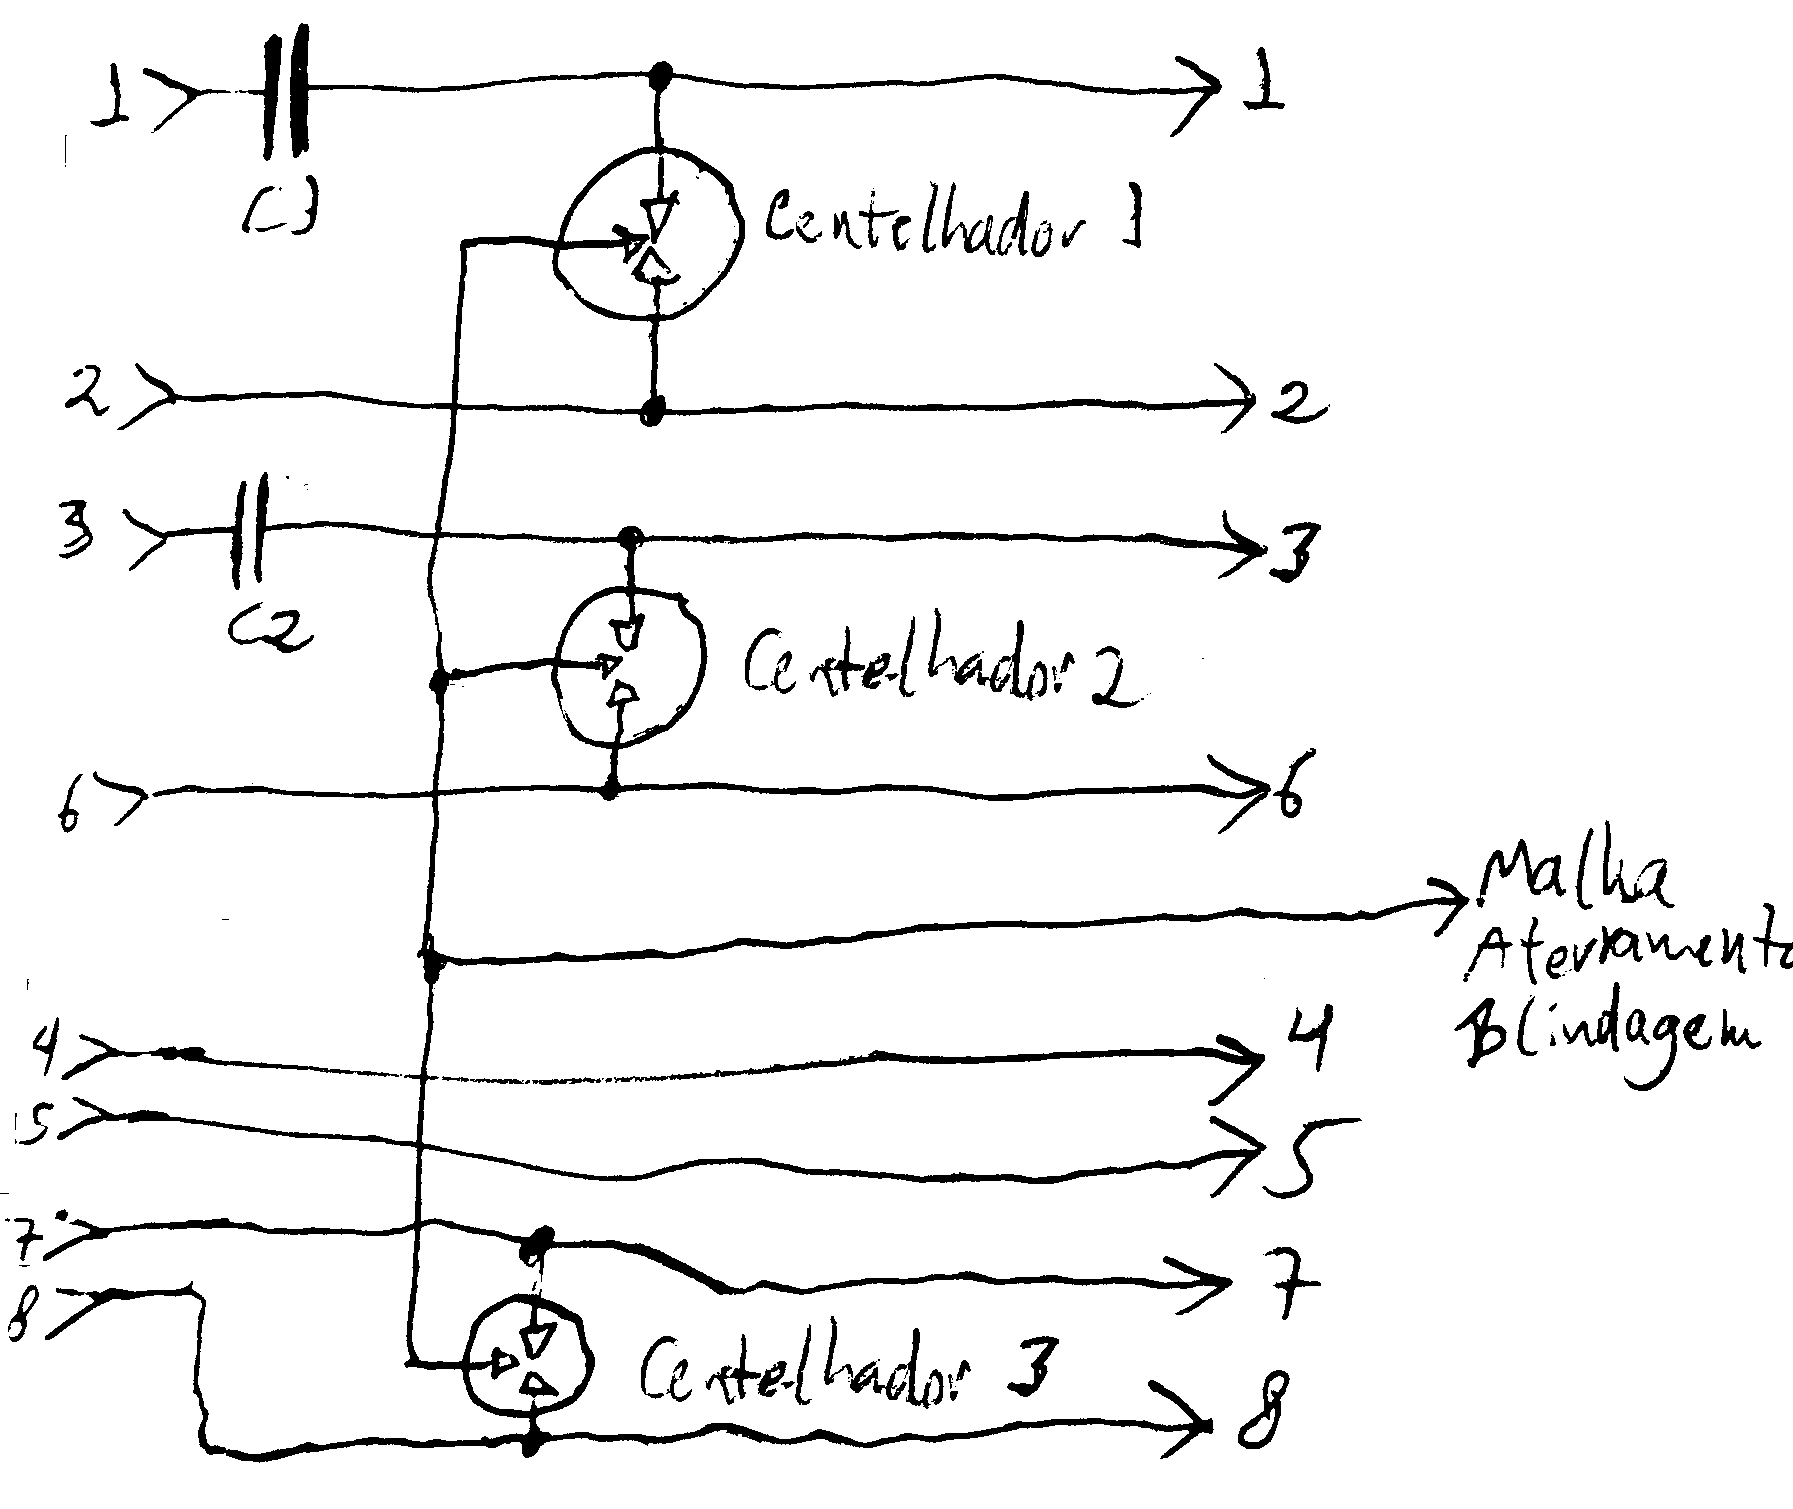 1 1
C1
Centelhador 1
2 2
3 3
C2
Centelhador 2
6 6
Malha
Aterramento
Blindagem
4 4
5 5
7 7
8 8
Centelhador 3